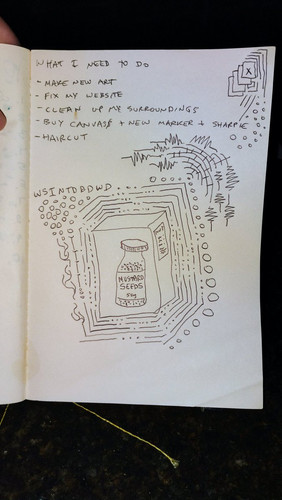 WHAT I NEED TO DO
- MAKE NEW ART
- FIX MY WEBSITE
- CLEAN UP MY SURROUNDINGS
- BUY CANVASS + NEW MARKER + SHARPIE
- HAIRCUT
X
WSINTDDDWD
MUSTARD
SEEDS
50g